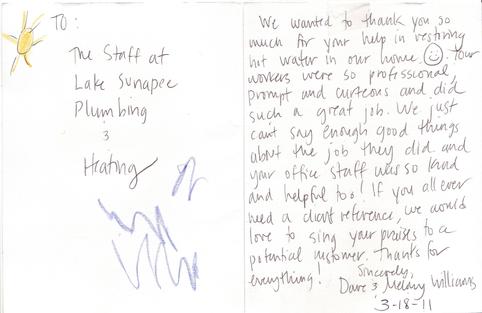 TO:
The Staff at
Lake Sunapee
Plumbing
&
Heating
We wanted to thank you so
much for your help in restoring
hot water in our home. Your
workers were so professional,
prompt and curteous and did
such a great job. We just
can't say enough good things
about the job they did and
your office staff was so kind
and helpful too! If you all ever
need a client reference, we would
love to sing your praises to a
potential customer. Thanks for
everything!
Sincerely,
Dave & Williams
3-18-11